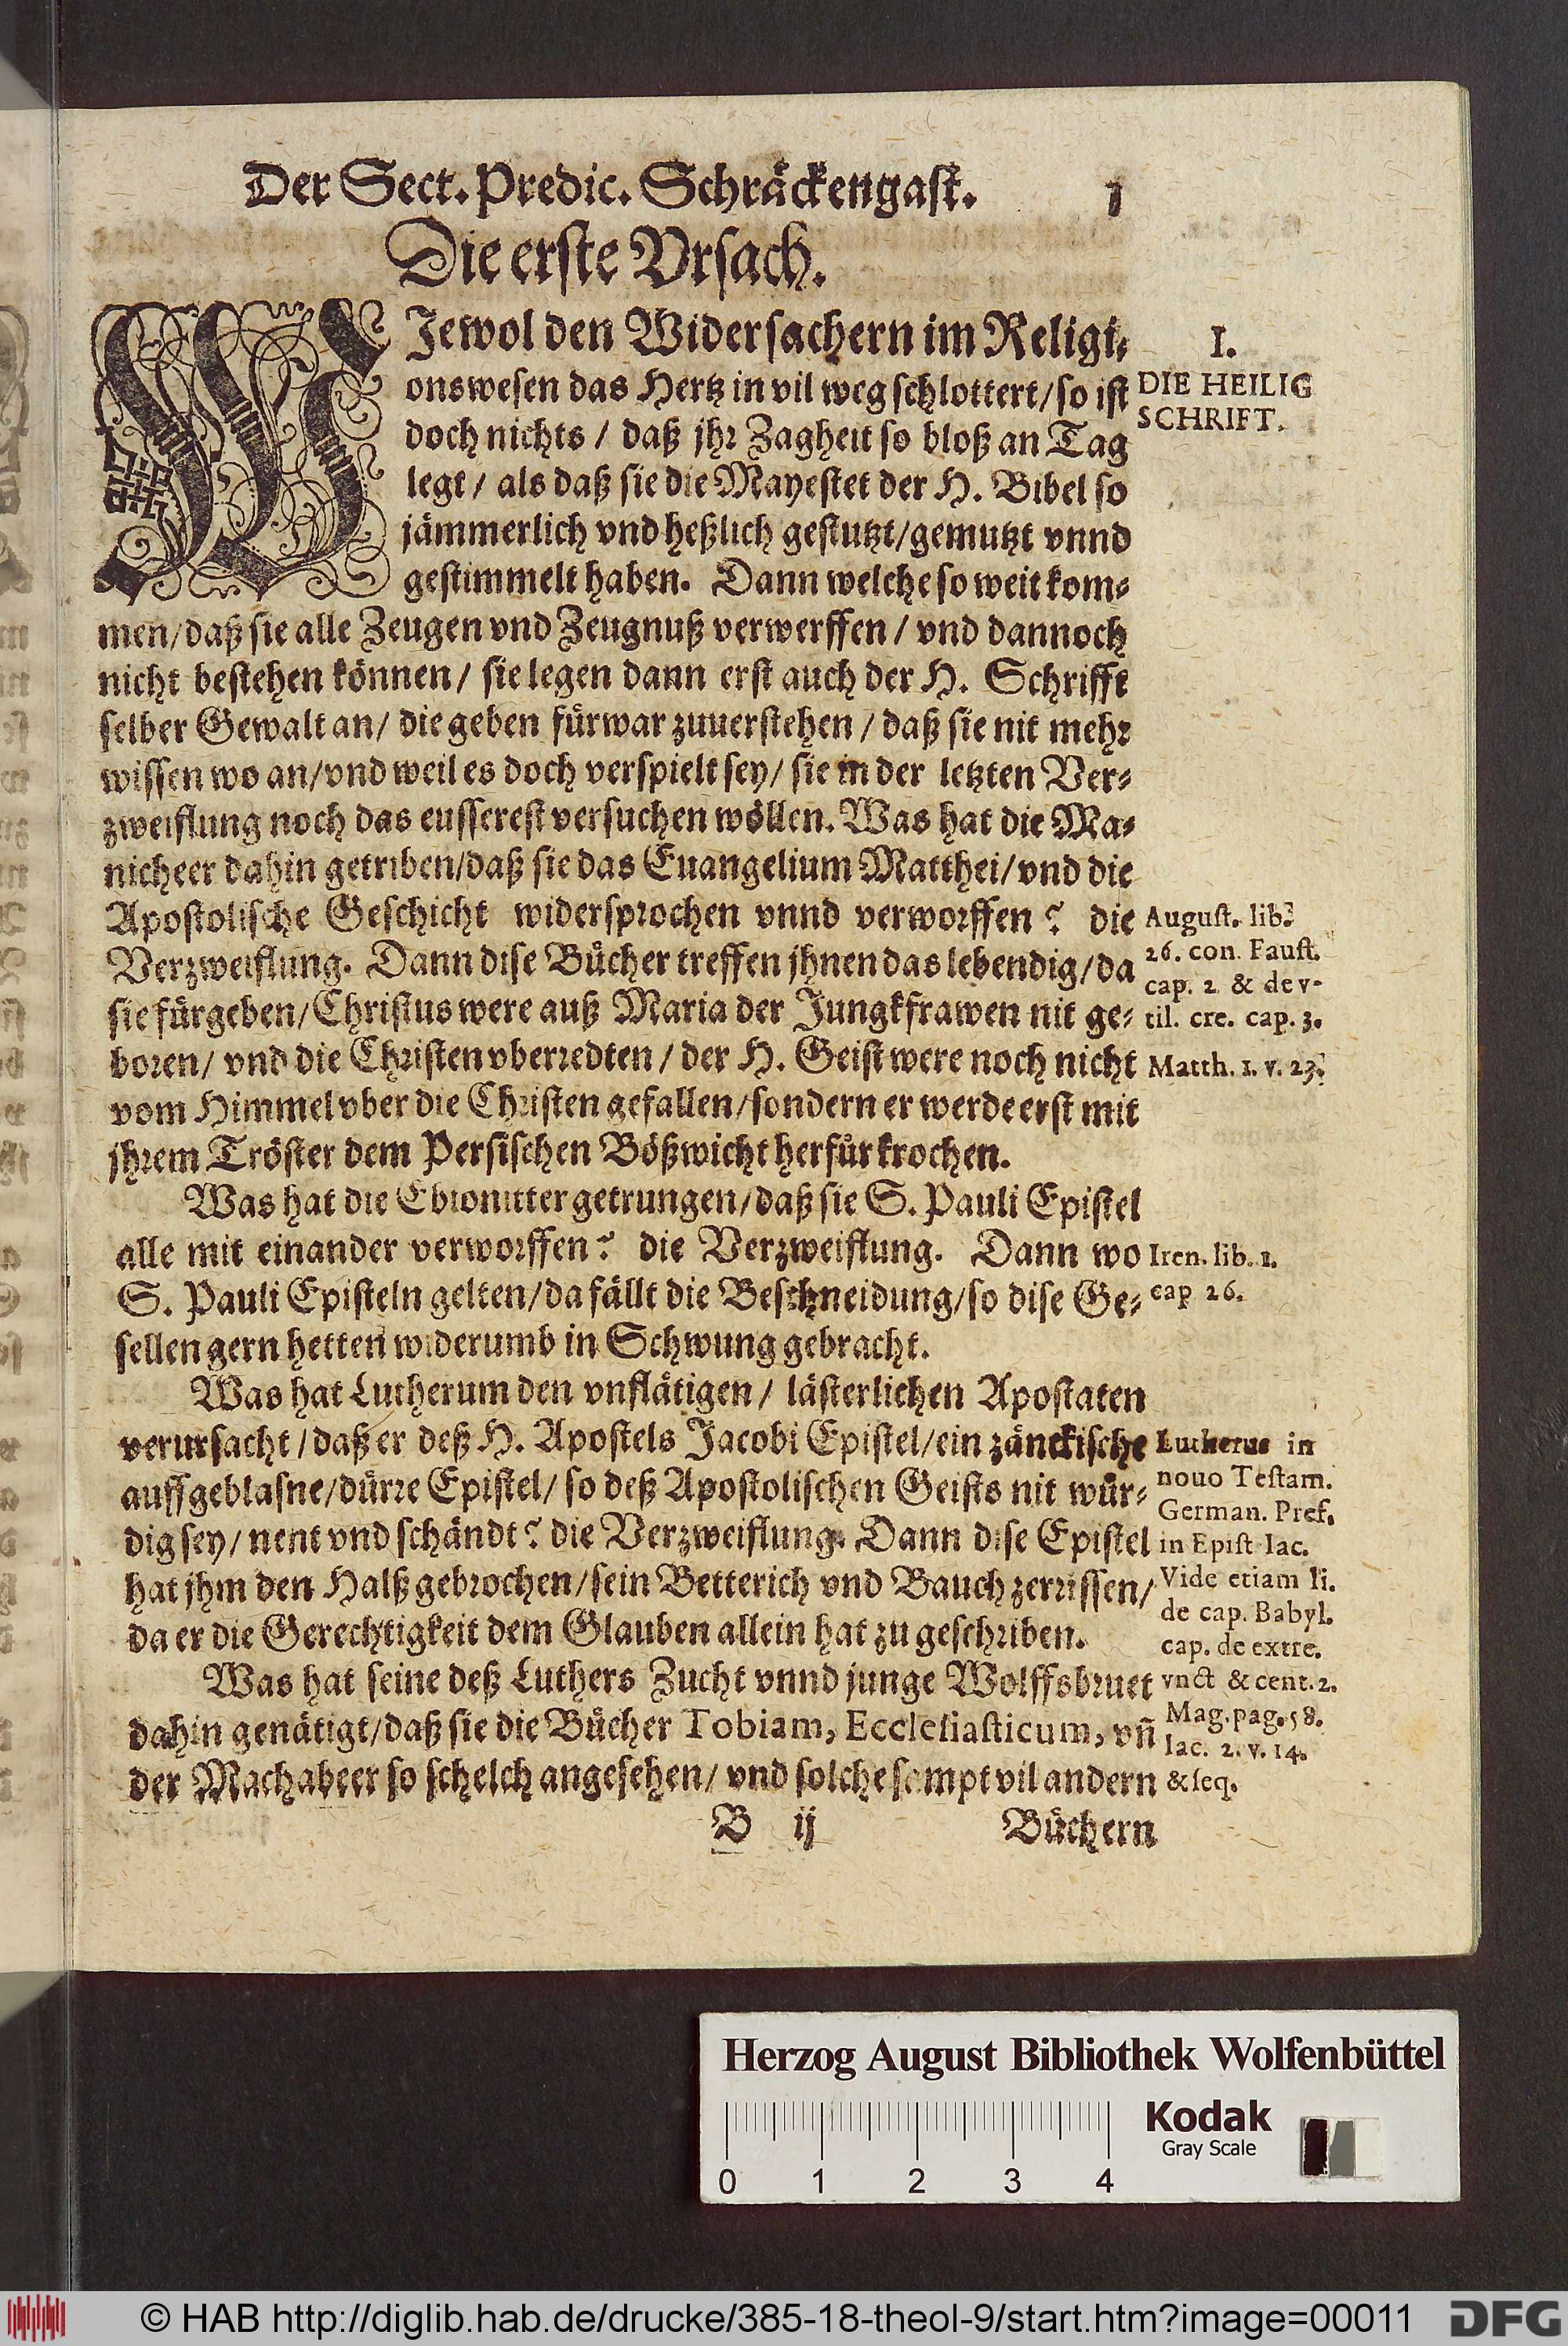 Der Sect. Predic. Schräckengast. 1
Die erste Vrsach.
WJewol den Widersachern im Religi-
onswesen das Hertz in vil weg schlottert/ so ist
doch nichts / daß jhr Zagheit so bloß an Tag
legt / als daß sie die Mayestet der H. Bibel so
jämmerlich vnd heßlich gestutzt/gemutzt vnnd
gestimmelt haben. Dann welche so weit kom-
men/daß sie alle Zeugen vnd Zeugnuß verwerffen / vnd dannoch
nicht bestehen können/ sie legen dann erst auch der H. Schrifft
selber Gewalt an/ die geben fürwar zuuerstehen / daß sie nit mehr
wissen wo an/vnd weil es doch verspielt sey/ sie in der letzten Ver-
zweiflung noch das eusserest versuchen wöllen. Was hat die Ma-
nicheer dahin getriben/daß sie das Euangelium Matthei/vnd die
Apostolische Geschicht widersprochen vnnd verworffen? die
Verzweiflung. Dann dise Bücher treffen jhnen das lebendig/da
sie fürgeben/Christus were auß Maria der Jungkfrawen nit ge-
boren/ vnd die Christen vberredten / der H. Geist were noch nicht
vom Himmel vber die Christen gefallen/sondern er werde erst mit
jhrem Tröster dem Persischen Bößwicht herfür krochen.
Was hat die Ebionitter getrungen/daß sie S. Pauli Epistel
alle mit einander verworffen? die Verzweiflung. Dann wo
S. Pauli Episteln gelten/da fällt die Beschneidung/so dise Ge-
sellen gern hetten widerumb in Schwung gebracht.
Was hat Lutherum den vnflätigen/ lästerlichen Apostaten
verursacht/daß er deß H. Apostels Jacobi Epistel/ein zänckische
auffgeblasne/dürre Epistel/ so deß Apostolischen Geists nit wür-
dig sey/ nent vnd schändt? die Verzweiflung. Dann dise Epistel
hat jhm den Halß gebrochen/sein Betterich vnd Bauch zerrissen/
da er die Gerechtigkeit dem Glauben allein hat zu geschriben.
Was hat seine deß Luthers Zucht vnnd junge Wolffsbruet
dahin genätigt/daß sie die Bücher Tobiam, Ecclesiasticum, vñ
der Machabeer so schelch angesehen/ vnd solche sampt vil andern
B ij Büchern
I.
DIE HEILIG
SCHRIFT.
August. lib.
26. con. Faust.
cap. 2 & de v-
til. cre. cap. 3.
Matth. 1. v. 23.
Iren. lib. 1.
cap 26.
Lutherus in
nouo Testam.
German. Pref.
in Epist Iac.
Vide etiam li.
de cap. Babyl.
cap. de extre.
vnct & cent. 2.
Mag. pag. 58.
Iac. 2. v. 14.
& seq.
Herzog August Bibliothek Wolfenbüttel
0 1 2 3 4
Kodak
Gray Scale
© HAB http://diglib.hab.de/drucke/385-18-theol-9/start.htm?image=00011
DFG